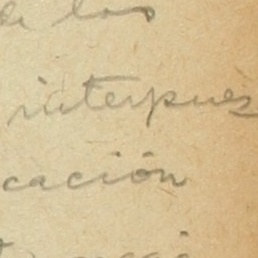 de los
interpues
cación